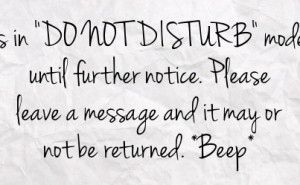 s in "DO NOT DISTURB" mode
until further notice. Please
leave a message and it may or
not be returned. *Beep*